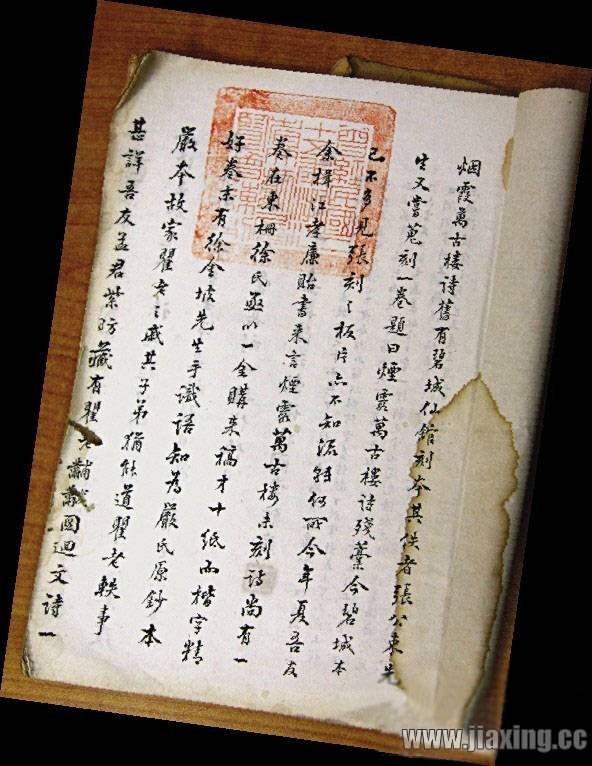 烟霞萬古樓詩舊有碧城仙館刻本其佚者張公東先
生又嘗蒐刻一卷題曰煙霞萬古樓詩殘藁今碧城本
已不多見張刻之板片亦不知流轉何所今年夏吾友
余楫江孝廉貽書來言煙霞萬古樓未刻詩尚有一
卷在東柵徐氏亟以一金購來稿才十紙而楷字精
好卷末有徐金坡先生手識語知為嚴氏原鈔本
嚴本故家瞿老之戚其子弟猶能道瞿老軼事
甚詳吾友孟君紫防藏有瞿老黼黻圖迴文詩一
www.jiaxing.cc